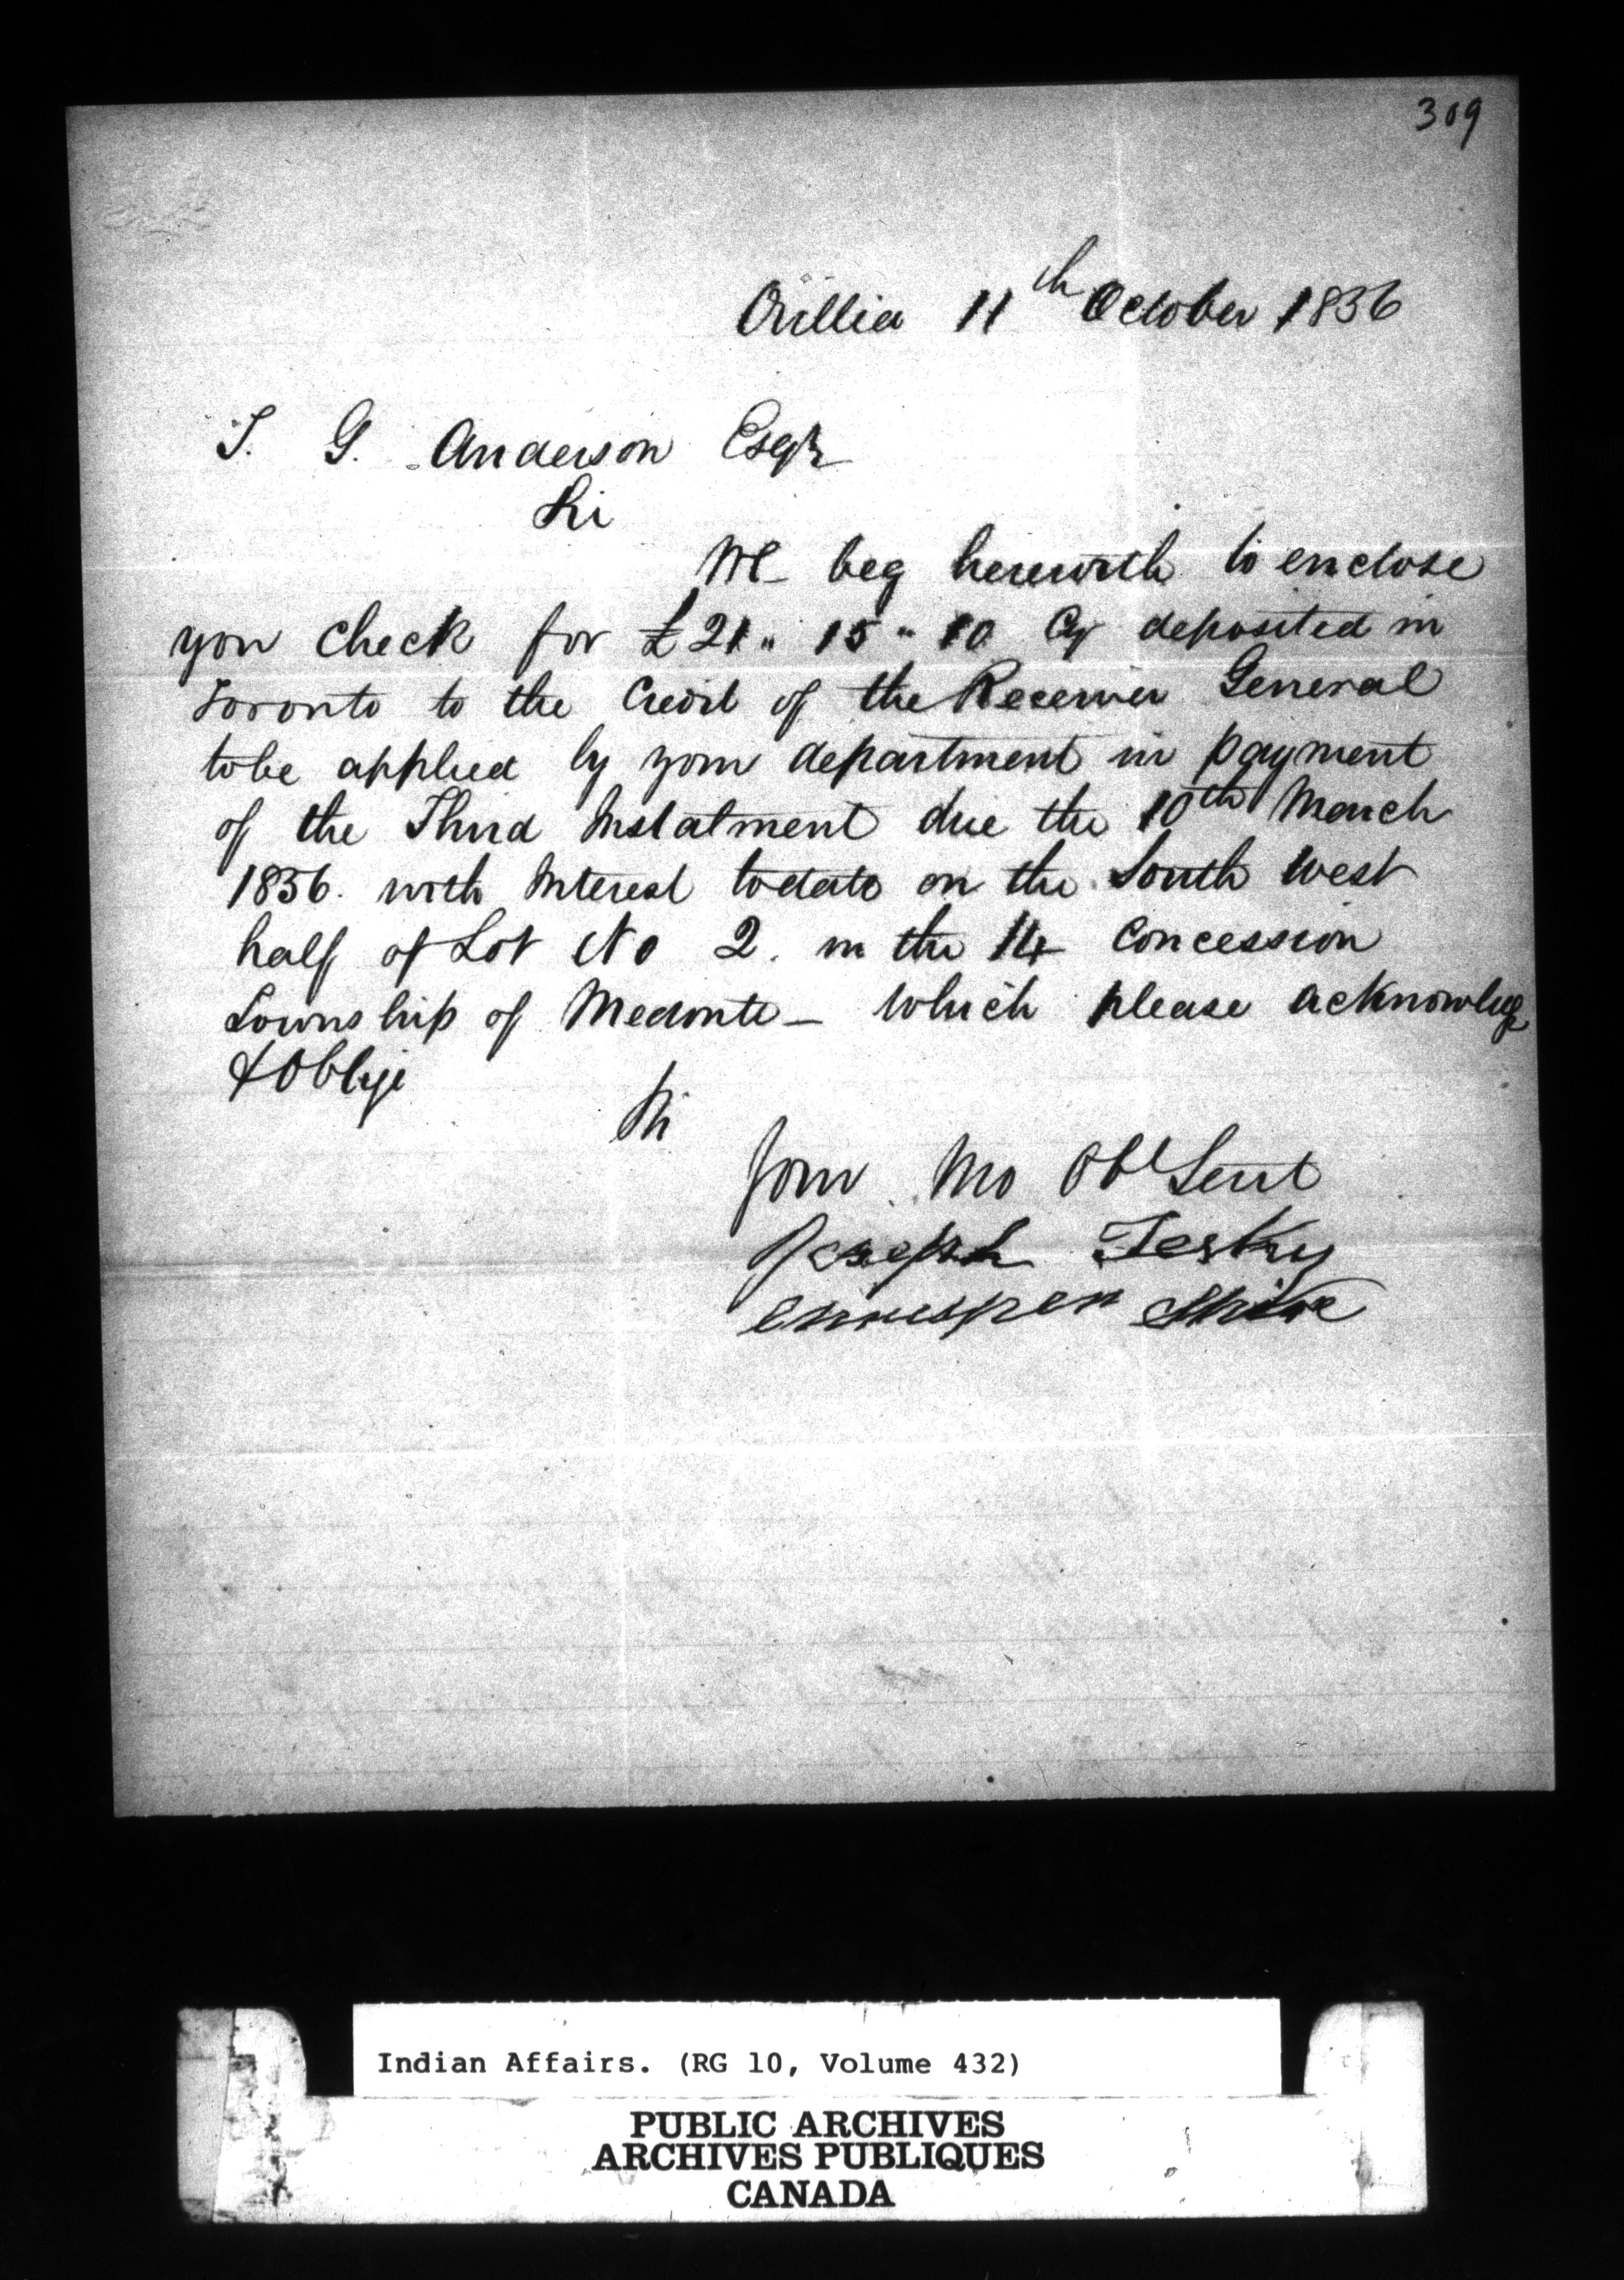 309
Orillia 11th October 1856
T. G. Anderson Esqr
Sir
We beg herewith to enclose
you Check for £21 " 15 " 10 Cy deposited in
Toronto to the Credit of the Receiver General
to be applied by your department in payment
of the Third Instalment due the 10th March
1856. with Interest to date on the South West
half of Lot No 2. in the 14 Concession
Township of Medonte - which please acknowledge
& Oblige
Sir
Your Mo Obt Servt
Joseph Teskey
Indian Affairs. (RG 10, Volume 432)
PUBLIC ARCHIVES
ARCHIVES PUBLIQUES
CANADA